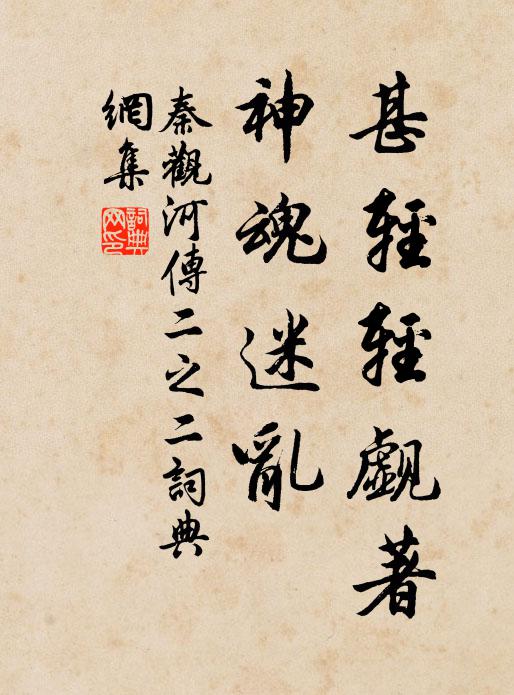 甚輕輕覷著
神魂迷亂
秦觀河傳二之二詞典
網集
詞典網印